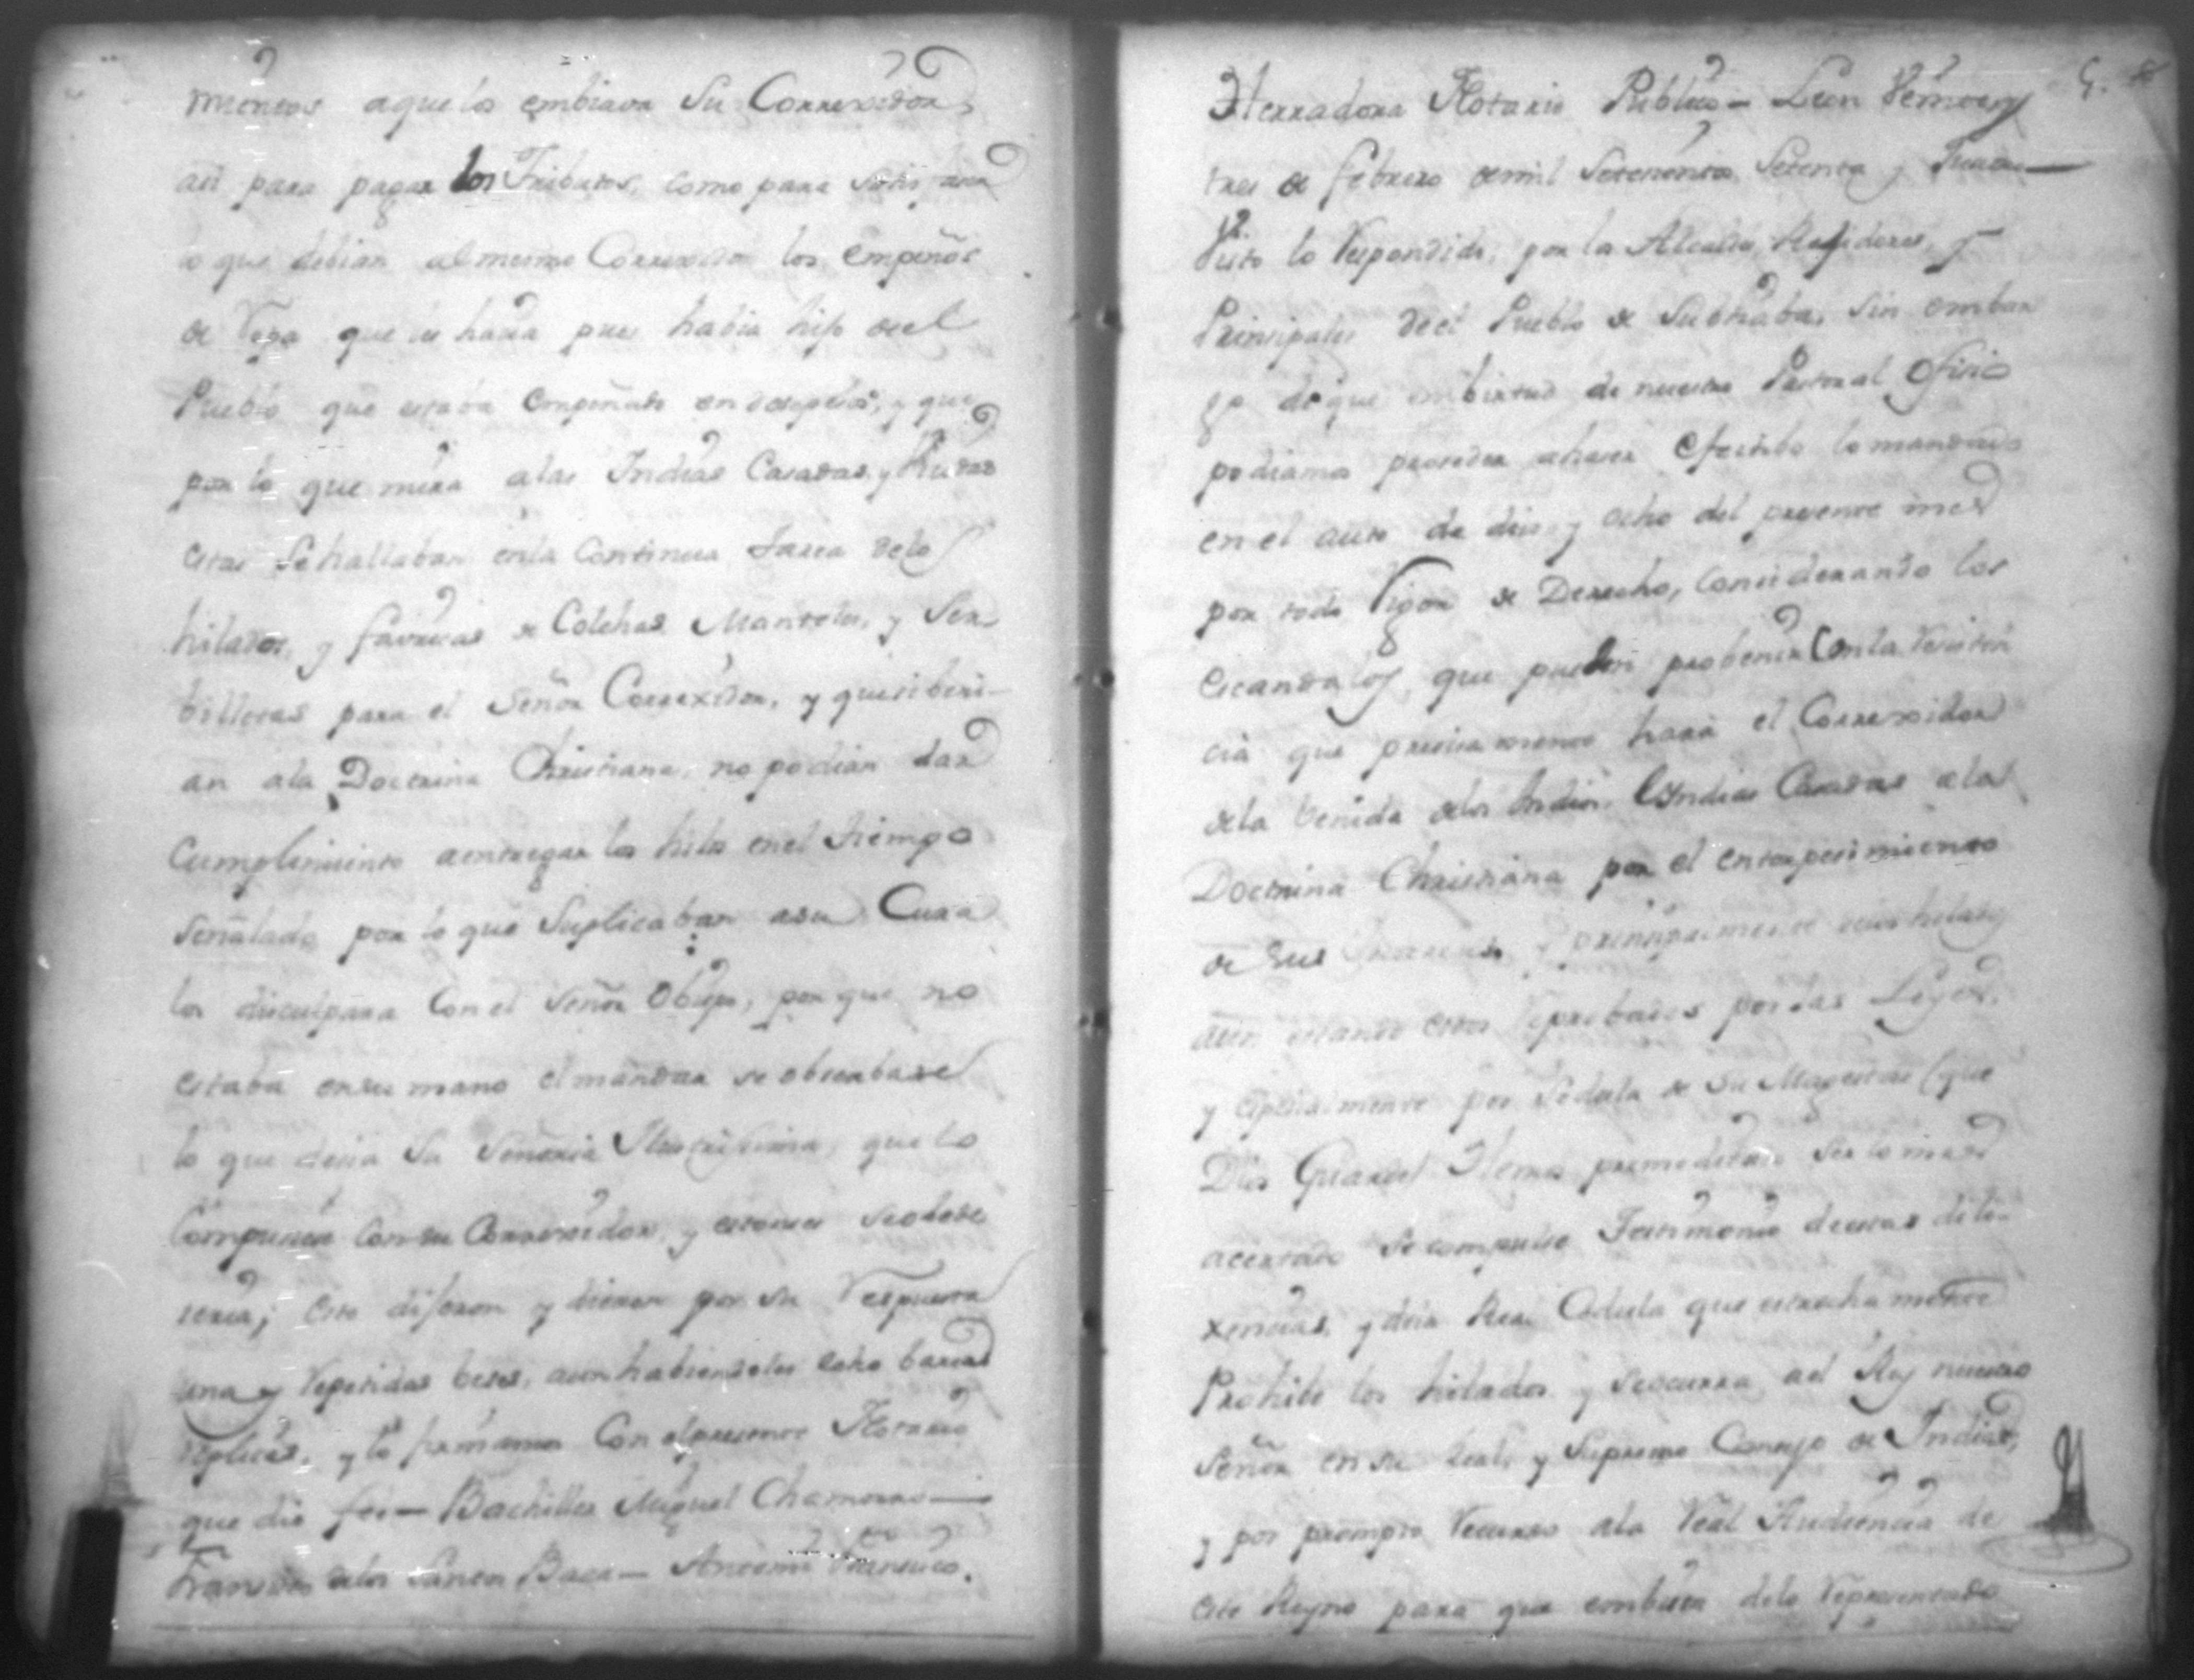 mientos aque los embiava Su Correxidor,
asi para pagar los Tributos, como para satisfacer
lo que debian al mesmo Correxidor los empeños
de Ropa que les hacia pues habia hijo de el
Pueblo que estaba empeñado en pesos, y que
por lo que mira alas Indias Casadas, y Viudas
estas Se hallaban en la Continua tarea delos
hilados, y favricas de Colchas Manteles, y Ser
billetas para el Señor Correxidor, y que si beni-
an ala Doctrina Christiana, no podian dar
Cumplimiento a entregar los hilos en el tiempo
Señalado, por lo que Suplicaban asu Cura
los disculpara Con el Señor Obispo, por que no
estaba en su mano el mandar se observase
lo que decia Su Señoria Ilustrisima, que lo
Compusiera Con su Correxidor, y entonces se obede
seria; Esto dijeron y dieron por su Respuesta
una y repetidas beses, aun habiendoles echo barias
replicas, y lo firmamos Con el presente Notario
que dio fee — Bachiller Miguel Chamorro —
Francisco delos Santos Baca — Antonio Francisco.
Herradora Notario Publico — Leon Veinte y
tres de febrero de mil Setecientos Setenta y
Visto lo Respondido, por los Alcaldes, Rexidores, y
Principales de el Pueblo de Subtiaba, sin embar
go de que en birtud de nuestro Pastoral Oficio
podiamos proceder ahacer efectibo lo mandado
en el auto de dies y ocho del presente mes
por todo Rigor de Derecho, Considerando los
escandalos, que pueden probenir Con la Resisten
cia que precisamente hará el Correxidor
dela benida delos Indios, é Indias Casadas ala
Doctrina Christiana por el entorpesimiento
de sus y principalmente delos hilados
aun estando estos reprobados por las Leyes,
y especialmente por Sedula de Su Magestad (que
Dios Guarde) Hemos premeditado Ser lo mas
acertado Se compulse Testimonio de estas dili-
xencias, y dela Real Cedula que estrechamente
Prohibe los hilados y se ocurra ael Rey nuestro
Señor en su Real, y Supremo Consejo de Indias,
y por prompto Recurso ala Real Audiencia de
este Reyno para que en bista delo Representado